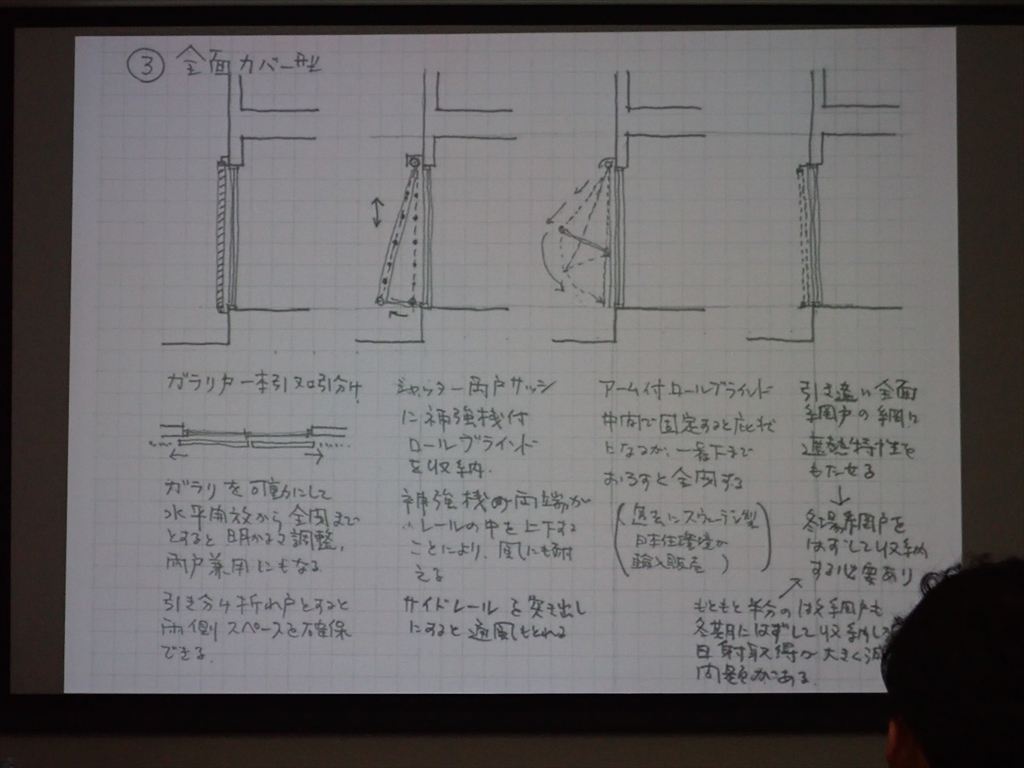 ③ 全面カバー型
ガラリ戸一本引又は引分け
ガラリを可動にして
水平開放から全閉まで
とすると明かるさ調整,
雨戸兼用にもなる
引き分け折れ戸とすると
両側スペースを確保
できる.
シャッター雨戸サッシ
に補強桟付
ロールブラインド
を収納.
補強桟の両端が
レールの中を上下する
ことにより、風にも耐
える
サイドレールを突き出し
にすると通風もとれる
アーム付ロールブラインド
中内で固定すると庇状
となるが、一番下まで
おろすと全閉する
(過去にスウェーデン製
日本住環境の
輸入販売)
引き違い全面
網戸の網に
遮熱特性を
もたせる
↓
冬場網戸を
はずして収納
する必要あり
もともと半分の 網戸も
冬期にはずして収納し
日射取得が大きく減
問題がある.